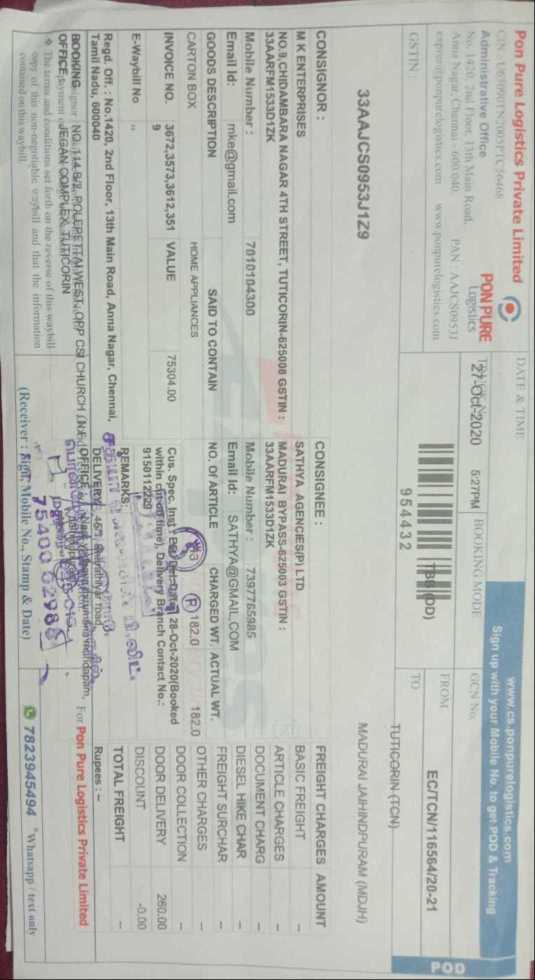 Pon Pure Logistics Private Limited
Administrative Office
No. 1420, 2nd Floor, 13th Main Road,
Anna Nagar, Chennai - 600 040. PAN : AAJCS0953J
www.ponpurelogistics.com
PON PURE
Logistics
GSTIN :
33AAJCS0953J1Z9
DATE & TIME
27-Oct-2020 5:27PM
BOOKING MODE
954432
www.cs.ponpurelogistics.com
Sign up with your Mobile No. to get POD & Tracking
GCN No.
EC/TCN/116564/20-21
POD
FROM
TUTICORIN (TCN)
TO
MADURAI JAIHINDPURAM (MDJH)
CONSIGNOR :
M K ENTERPRISES
NO.9,CHIDAMBARA NAGAR 4TH STREET, TUTICORIN-625008 GSTIN :
33AARFM1533D1ZK
Mobile Number : 7010104300
Email Id: mke@gmail.com
CONSIGNEE :
SATHYA AGENCIES(P) LTD
MADURAI BYPASS-625003 GSTIN :
33AARFM1533D1ZK
Mobile Number : 7397765985
Email Id: SATHYA@GMAIL.COM
GOODS DESCRIPTION SAID TO CONTAIN NO. Of ARTICLE CHARGED WT. ACTUAL WT.
CARTON BOX HOME APPLIANCES 182.0 182.0
INVOICE NO. 3672,3573,3612,351
9
VALUE 75304.00
E-Waybill No "
Cus. Spec. Inst : 28-Oct-2020(Booked
within cut-off time), Delivery Branch Contact No.:-
9150112229
REMARKS:
FREIGHT CHARGES AMOUNT
BASIC FREIGHT –
ARTICLE CHARGES –
DOCUMENT CHARG –
DIESEL HIKE CHAR –
FREIGHT SURCHAR –
OTHER CHARGES –
DOOR COLLECTION –
DOOR DELIVERY 260.00
DISCOUNT -0.00
TOTAL FREIGHT –
Rupees : –
Regd. Off. : No.1420, 2nd Floor, 13th Main Road, Anna Nagar, Chennai,
Tamil Nadu, 600040
BOOKING
OFFICE
JEGAN COMPLEX, TUTICORIN
DELIVERY
OFFICE
For Pon Pure Logistics Private Limited
❖ The terms and conditions set forth on the reverse of this waybill
copy of this non-negotiable waybill and that the information
contained on this waybill
75400 02988
(Receiver : Sign, Mobile No., Stamp & Date)
7823945494 *Whatsapp / text only